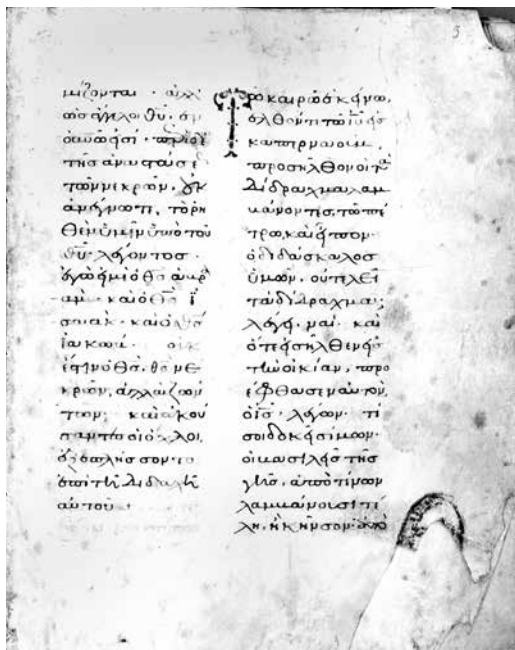 μίζονται· ἀλλ
ὡς ἄγγελοι θ̅υ̅ ἐν
οὐνῶ εἰσί· περὶ δὲ
τῆς ἀναστάσε
τῶν νεκρῶν, οὐκ
ἀνέγνωτε, τὸ ῥη
θὲν ὑμῖν ὑπὸ τοῦ
θ̅υ̅ λέγοντος·
ἐγώ εἰμι ὁ θ̅ς̅ ἀβρα
ὰμ· καὶ ὁ θ̅ς̅ ἰ
σαὰκ· καὶ ὁ θ̅ς̅
ἰακώβ· οὐκ
ἔστιν ὁ θ̅ς̅, θ̅ς̅ νε
κρῶν, ἀλλὰ ζών
των· καὶ ἀκού
σαντες οἱ ὄχλοι,
ἐξεπλήσσοντο
ἐπὶ τῆ διδαχῆ
αὐτοῦ·
Τῶ καιρῶ ἐκείνω,
ἐλθόντι τῶ ι̅υ̅ εἰς
καπερναοὺμ,
προσῆλθον οἱ τὰ
δίδραχμα λαμ
βάνοντες, τῶ πέ
τρω, καὶ εἶπον·
ὁ διδάσκαλος
ὑμῶν, οὐ τελεῖ
τὰ δίδραχμα;
λέγει, ναί· καὶ
ὅτε εἰσῆλθεν εἰς
τὴν οἰκίαν, προ
έφθασεν αὐτὸν,
ὁ ι̅ς̅ λέγων· τί
σοι δοκεῖ σίμων·
οἱ βασιλεῖς τῆς
γῆς, ἀπὸ τίνων
λαμβάνουσι τέ
λη, ἢ κῆνσον· ἀπὸ